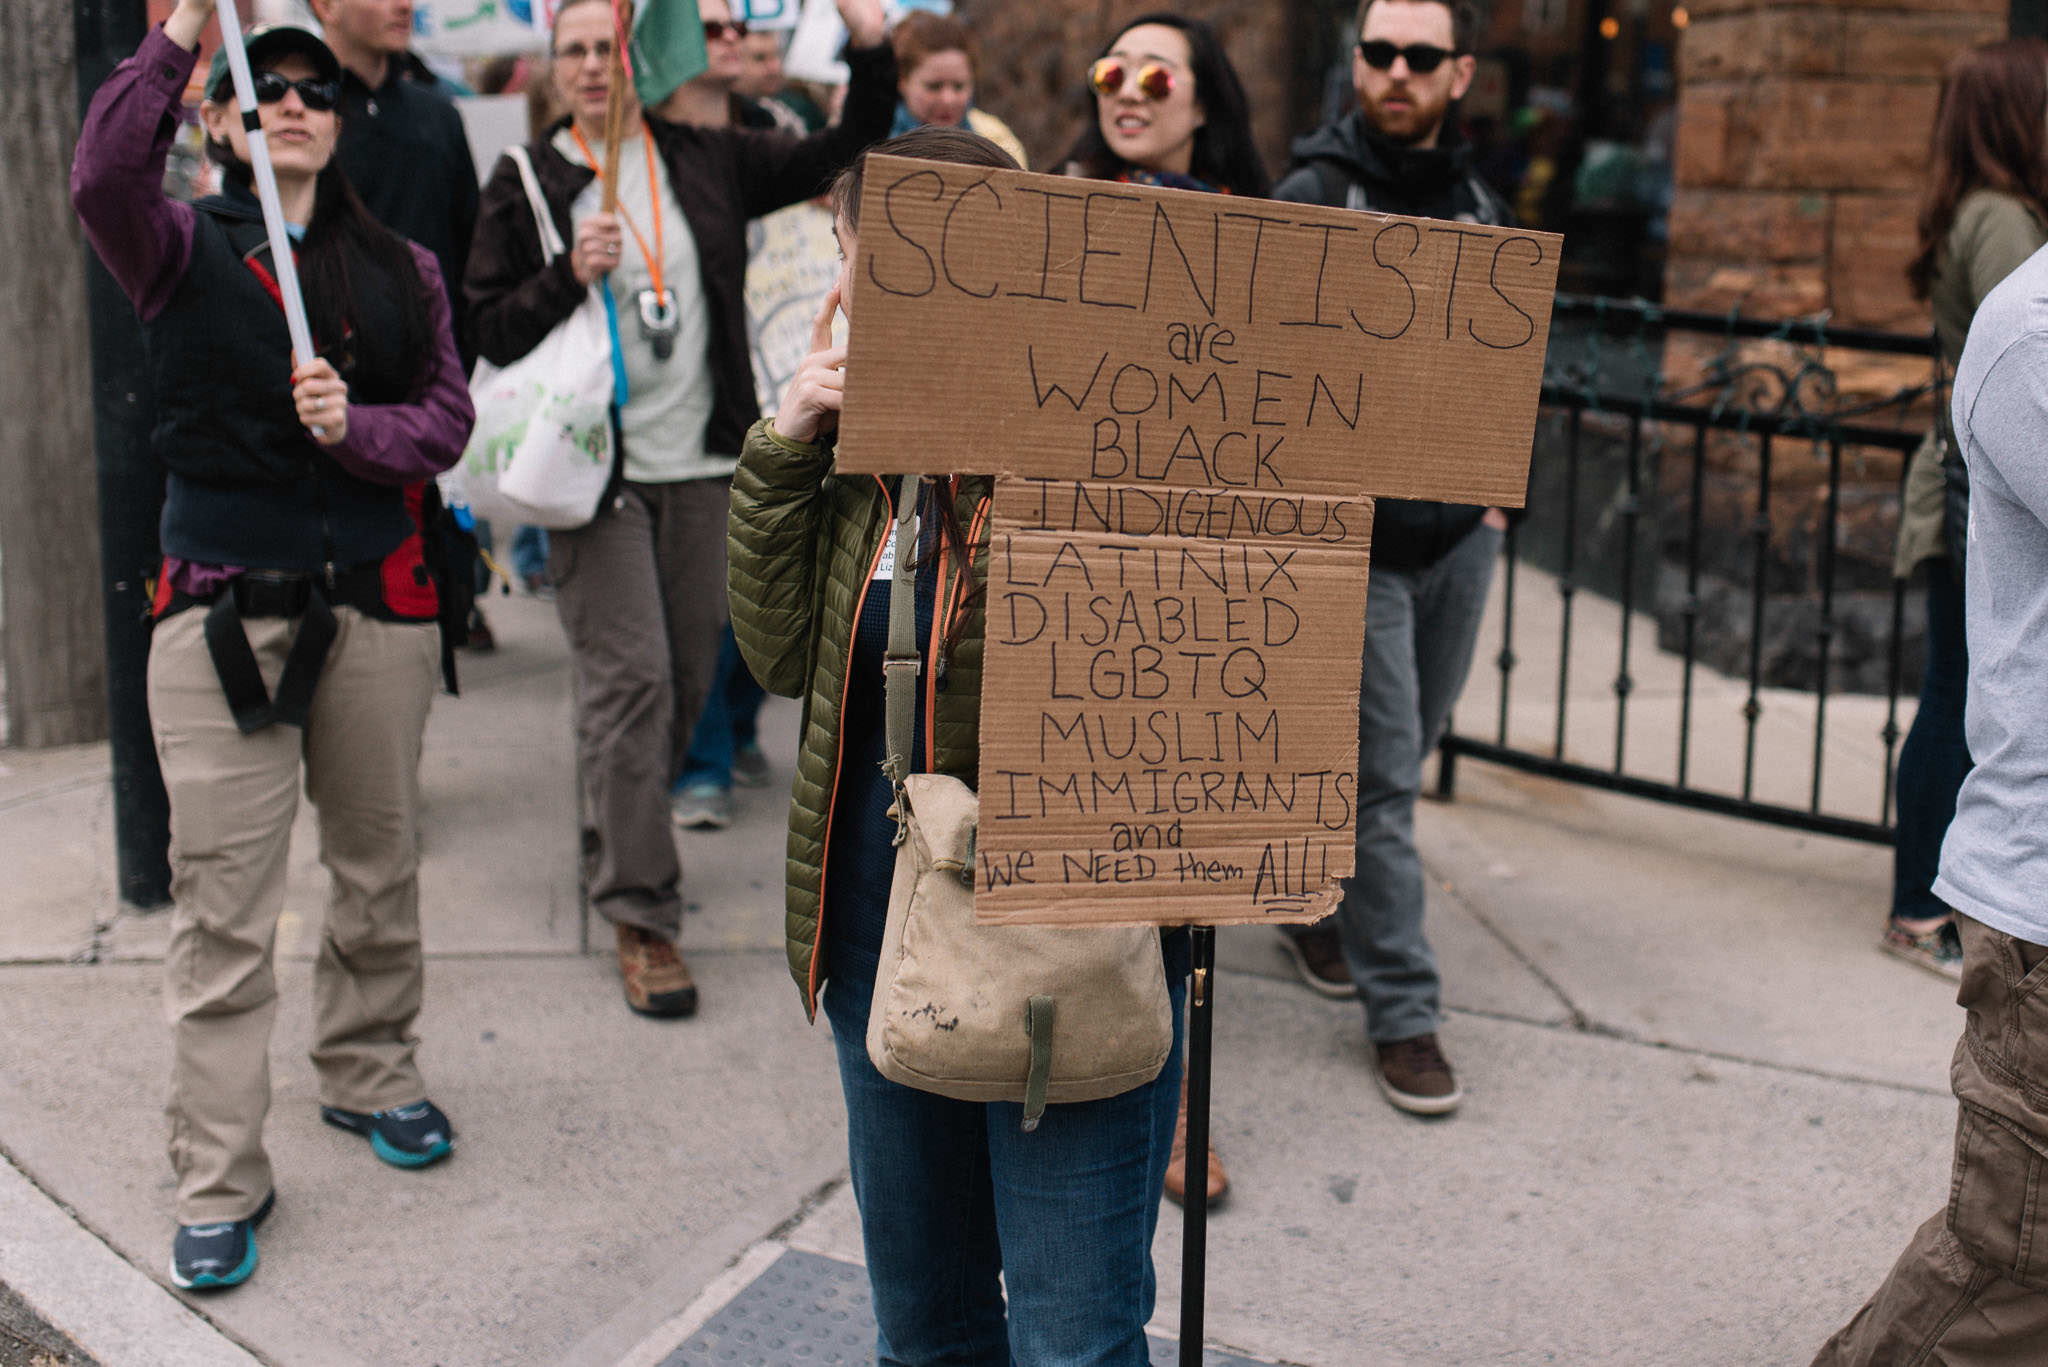 SCIENTISTS
are
WOMEN
BLACK
INDIGENOUS
LATINIX
DISABLED
LGBTQ
MUSLIM
IMMIGRANTS
and
WE NEED them ALL!